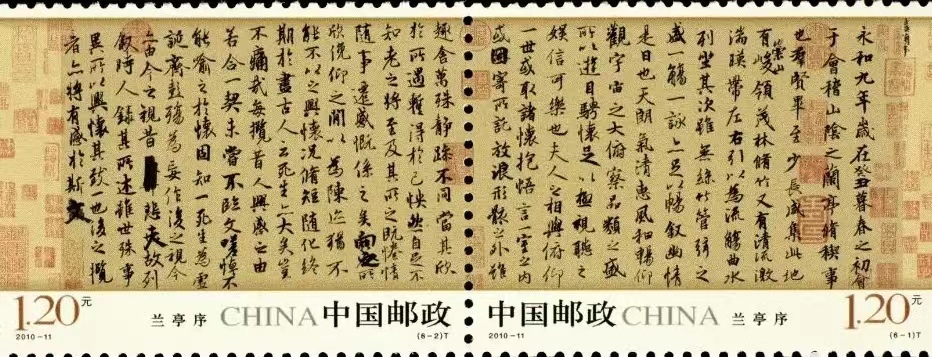 永和九年歲在癸丑暮春之初會
于會稽山陰之蘭亭脩稧事
也群賢畢至少長咸集此地
有崇山峻領茂林脩竹又有清流激
湍暎帶左右引以為流觴曲水
列坐其次雖無絲竹管弦之
盛一觴一詠亦足以暢敘幽情
是日也天朗氣清惠風和暢仰
觀宇宙之大俯察品類之盛
所以遊目騁懷足以極視聽之
娛信可樂也夫人之相與俯仰
一世或取諸懷抱悟言一室之內
或因寄所託放浪形骸之外雖
趣舍萬殊靜躁不同當其欣
於所遇蹔得於己怏然自足不
知老之將至及其所之既惓情
隨事遷感慨係之矣向之所
欣俛仰之閒以為陳迹猶不
能不以之興懷況脩短隨化終
期於盡古人云死生亦大矣豈
不痛哉每攬昔人興感之由
若合一契未嘗不臨文嗟悼不
能喻之於懷固知一死生為虛
誕齊彭殤為妄作後之視今
亦由今之視昔悲夫故列
敘時人錄其所述雖世殊事
異所以興懷其致一也後之攬
者亦將有感於斯文
1.20元 兰亭序 CHINA 中国邮政
2010-11 (6-2)T
CHINA 中国邮政 兰亭序 1.20元
2010-11 (6-1)T